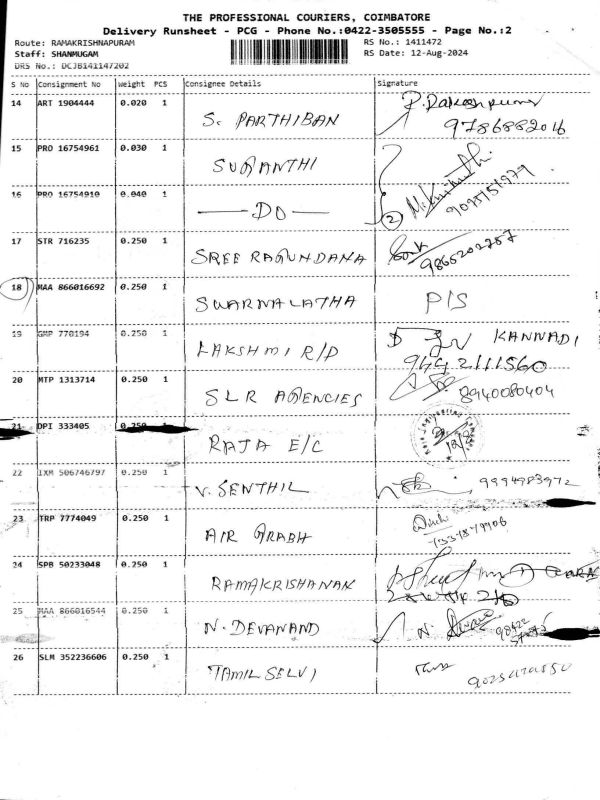 THE PROFESSIONAL COURIERS, COIMBATORE
Delivery Runsheet - PCG - Phone No.:0422-3505555 - Page No.:2
Route: RAMAKRISHNAPURAM RS No.: 1411472
Staff: SHANMUGAM RS Date: 12-Aug-2024
DRS No.: DCJB141147202
S No Consignment No Weight PCS Consignee Details Signature
14 ART 1904444 0.020 1 S. PARTHIBAN
9786882016
15 PRO 16754961 0.030 1 SUGANTHI
16 PRO 16754910 0.040 1 — DO — 2
9095151979
17 STR 716235 0.250 1 SREE RAGUNDANA
9865202757
18 MAA 866016692 0.250 1 SWARNALATHA P/S
19 GMP 770194 0.250 1 LAKSHMI R/D KANNADI
944 2111560
20 MTP 1313714 0.250 1 SLR AGENCIES 8940080404
21 DPI 333405 0.250 1 RAJA E/C
22 IXM 506746797 0.250 1 V. SENTHIL 9994983972
23 TRP 7774049 0.250 1 AIR ARABH
24 SPB 50233048 0.250 1 RAMAKRISHANAN
25 MAA 866016544 0.250 1 N. DEVANAND N.
26 SLM 352236606 0.250 1 TAMIL SELVI